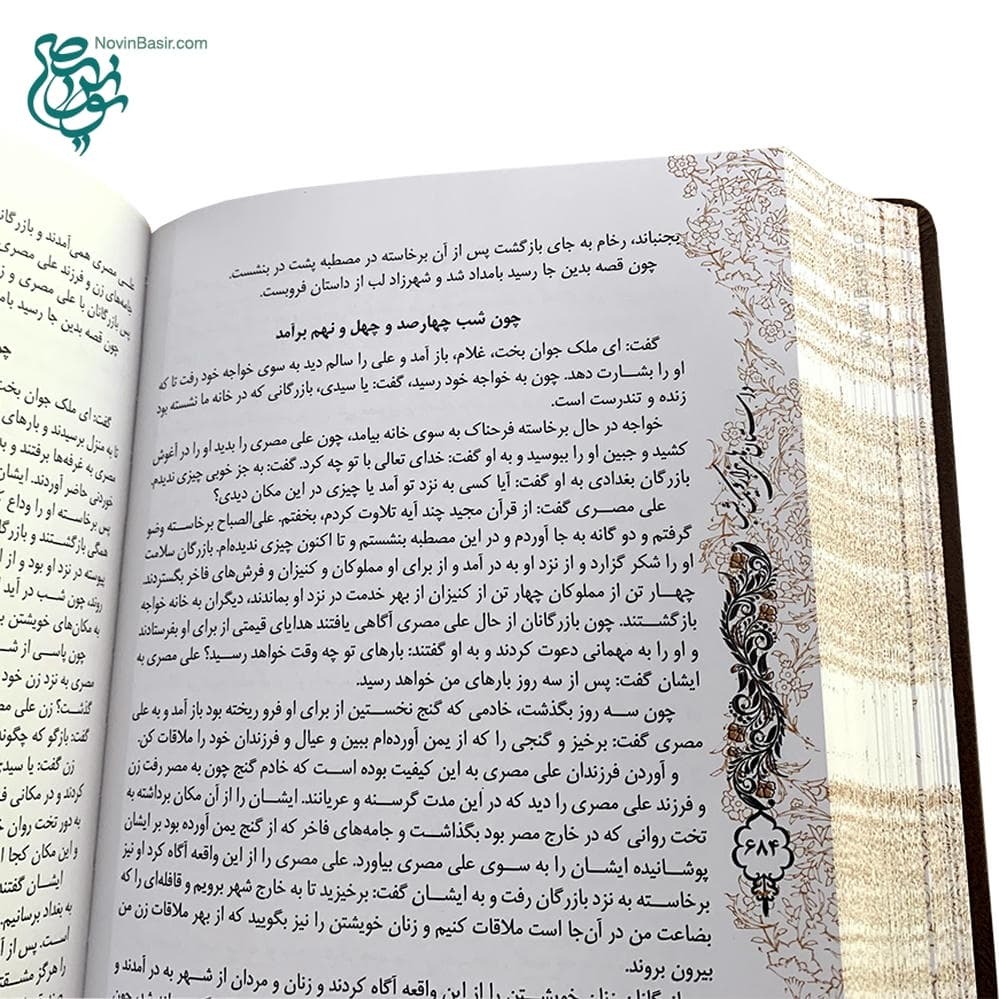 NovinBasir.com
بجنباند، رخام به جای بازگشت پس از آن برخاسته در مصطبه پشت در بنشست.
چون قصه بدین جا رسید بامداد شد و شهرزاد لب از داستان فروبست.
چون شب چهارصد و چهل و نهم برآمد
گفت: ای ملک جوان بخت، غلام، باز آمد و علی را سالم دید به سوی خواجه خود رفت تا که
او را بشارت دهد. چون به خواجه خود رسید، گفت: یا سیدی، بازرگانی که در خانه ما نشسته بود
زنده و تندرست است.
خواجه در حال برخاسته فرحناک به سوی خانه بیامد، چون علی مصری را بدید او را در آغوش
کشید و جبین او را ببوسید و به او گفت: خدای تعالی با تو چه کرد. گفت: به جز خوبی چیزی ندیدم.
بازرگان بغدادی به او گفت: آیا کسی به نزد تو آمد یا چیزی در این مکان دیدی؟
علی مصری گفت: از قرآن مجید چند آیه تلاوت کردم، بخفتم. علی‌الصباح برخاسته وضو
گرفتم و دو گانه به جا آوردم و در این مصطبه بنشستم و تا اکنون چیزی ندیده‌ام. بازرگان سلامت
او را شکر گزارد و از نزد او به در آمد و از برای او مملوکان و کنیزان و فرش‌های فاخر بگستردند.
چهار تن از مملوکان چهار تن از کنیزان از بهر خدمت در نزد او بماندند، دیگران به خانه خواجه
بازگشتند. چون بازرگانان از حال علی مصری آگاهی یافتند هدایای قیمتی از برای او بفرستادند
و او را به مهمانی دعوت کردند و به او گفتند: بارهای تو چه وقت خواهد رسید؟ علی مصری به
ایشان گفت: پس از سه روز بارهای من خواهد رسید.
چون سه روز بگذشت، خادمی که گنج نخستین از برای او فرو ریخته بود باز آمد و به علی
مصری گفت: برخیز و گنجی را که از یمن آورده‌ام ببین و عیال و فرزندان خود را ملاقات کن.
و آوردن فرزندان علی مصری به این کیفیت بوده است که خادم گنج چون به مصر رفت زن
و فرزند علی مصری را دید که در این مدت گرسنه و عریانند. ایشان را از آن مکان برداشته به
تخت روانی که در خارج مصر بود بگذاشت و جامه‌های فاخر که از گنج یمن آورده بود بر ایشان
پوشانیده ایشان را به سوی علی مصری بیاورد. علی مصری را از این واقعه آگاه کرد او نیز
برخاسته به نزد بازرگان رفت و به ایشان گفت: برخیزید تا به خارج شهر برویم و قافله‌ای را که
بضاعت من در آن‌جا است ملاقات کنیم و زنان خویشتن را نیز بگویید که از بهر ملاقات زن من
بیرون بروند.
زنان خویشتن را از این واقعه آگاه کردند و زنان و مردان از شهر به در آمدند و
۶۸۴
علی مصری همی‌آمدند و
جامه‌های زن و فرزند علی مصری
پس بازرگانان با علی مصری و
چون قصه بدین جا رسید
گفت: ای ملک جوان بخت
تا به منزل برسیدند و بارهای
مصری به غرفه‌ها برفتند و
خوردنی حاضر آوردند. ایشان
پس برخاسته او را وداع
همگی بازگشتند و
پیوسته در نزد او بود و از
روند، چون شب در آید
به مکان‌های خویشتن
چون پاسی از
مصری به نزد زن خود
گذشت؟ زن علی
گفت: بازگو که چگونه
زن گفت: یا سیدی
کردند و در مکانی
به دور تخت روان
و این مکان کجا
ایشان گفتند
به بغداد برسانیم.
است. پس از
را هرگز